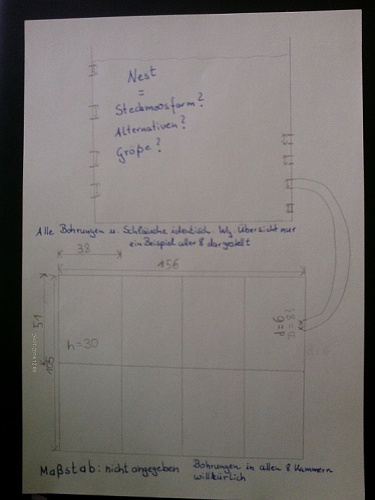 Nest
=
Steckmoosfarm?
Alternativen?
Größe?
Alle Bohrungen u. Schläuche identisch. Wg. Übersicht nur
ein Beispiel aller 8 dargestellt
38
156
51
105
h=30
d=6
Maßstab: nicht angegeben
Bohrungen in allen 8 Kammern
willkürlich